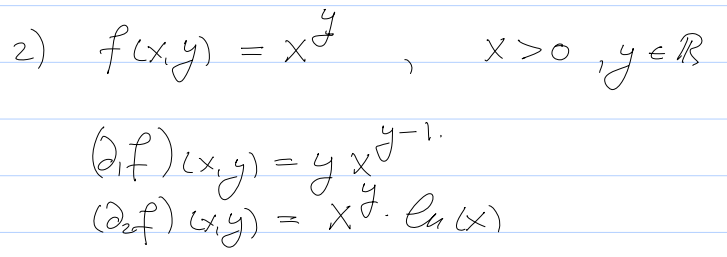 2) f(x,y) = x^y , x > 0 , y ∈ ℝ
(∂₁f)(x,y) = y x^{y-1}.
(∂₂f)(x,y) = x^y · ln(x)